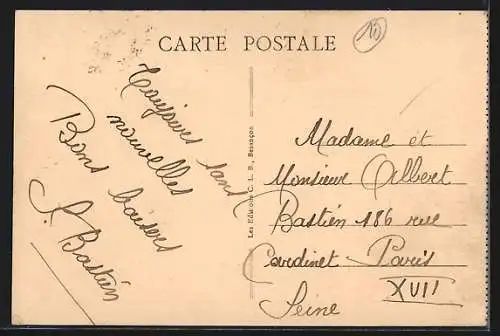 CARTE POSTALE
10
Toujours sans
nouvelles
Bons baisers
S. Bastién
Les Editions C. L. B., Besançon
Madame et
Monsieur Albert
Bastién 186 rue
Cardinet Paris
XVII
Seine